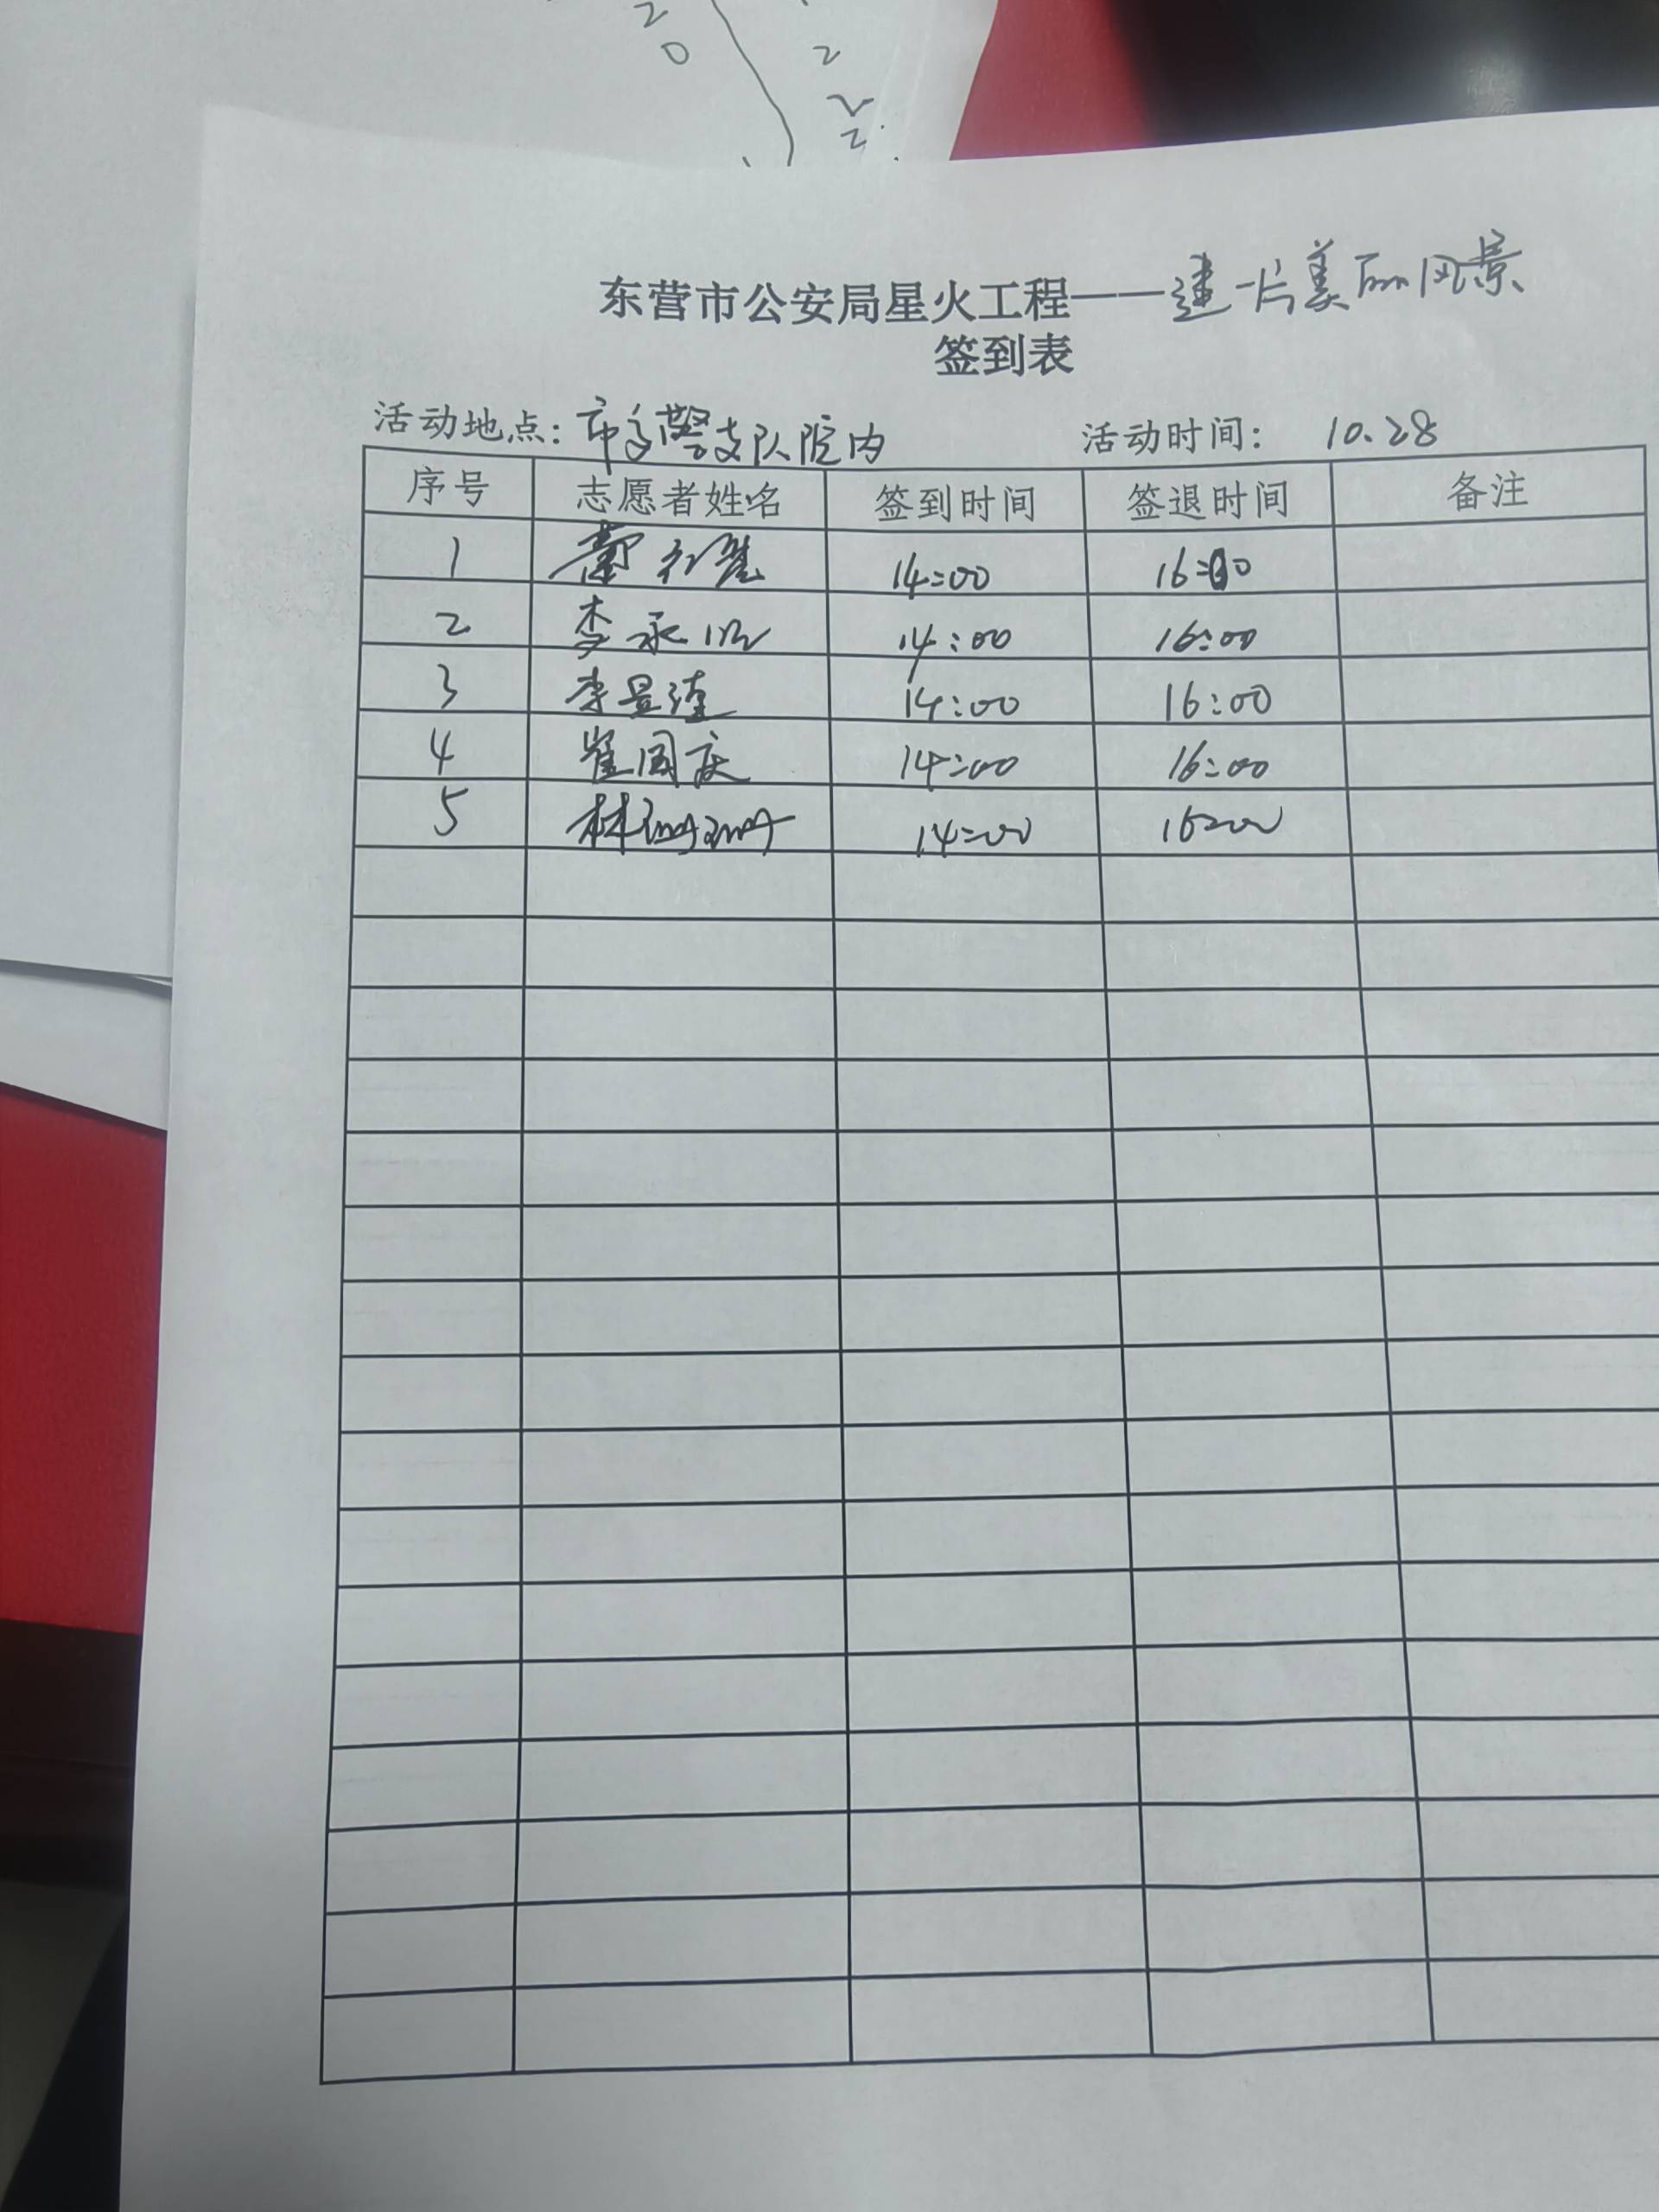 2
0
2
2
2
东营市公安局星火工程——建一片美丽风景
签到表
活动地点：市交警支队院内 活动时间： 10.28
序号 志愿者姓名 签到时间 签退时间 备注
1 14:00 16:00
2 李永 14:00 16:00
3 李昱 14:00 16:00
4 崔国庆 14:00 16:00
5 林 14:00 16:00